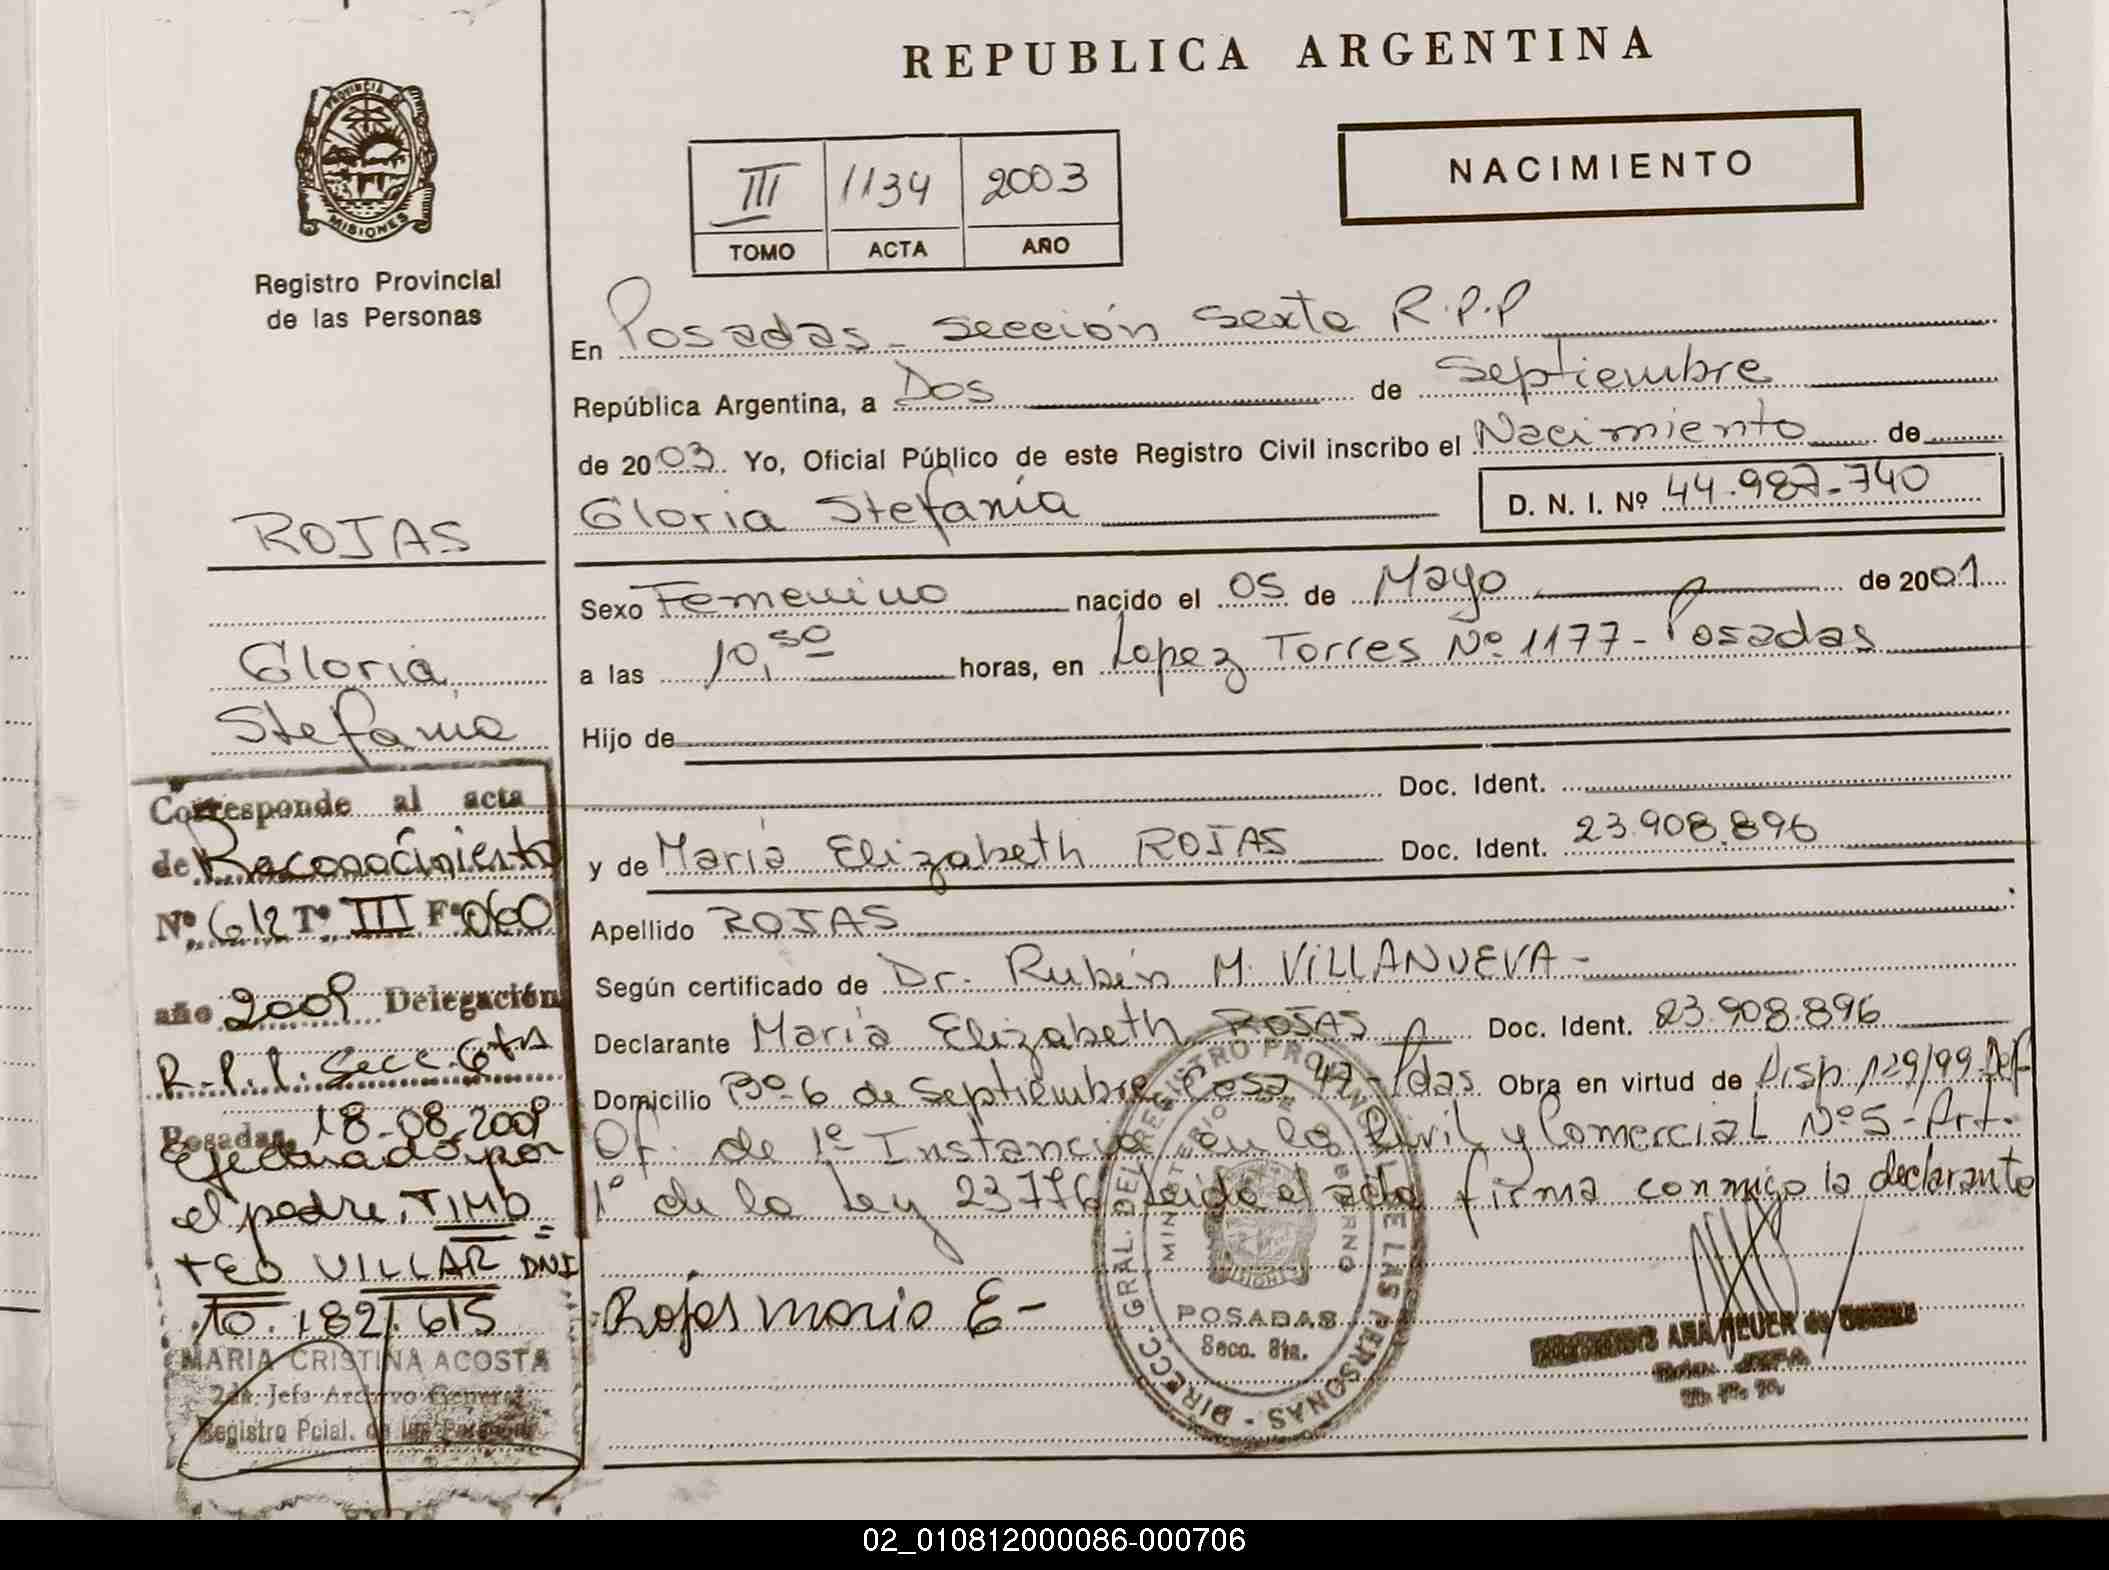 REPUBLICA ARGENTINA
PROVINCIA DE
MISIONES
Registro Provincial
de las Personas
III 1134 2003
TOMO ACTA AÑO
NACIMIENTO
En Posadas - Sección Sexta R.P.P
República Argentina, a Dos de Septiembre
de 2003 Yo, Oficial Público de este Registro Civil inscribo el Nacimiento de
Gloria Stefanía
D. N. I. Nº 44.987.740
Sexo Femenino nacido el 05 de Mayo de 2001
a las 10,50 horas, en Lopez Torres Nº 1177 - Posadas
Hijo de
Doc. Ident.
y de María Elizabeth ROJAS Doc. Ident. 23.908.896
Apellido ROJAS
Según certificado de Dr. Rubén M. VILLANUEVA -
Declarante María Elizabeth ROJAS Doc. Ident. 23.908.896
Domicilio Bº 6 de Septiembre Casa 47 - Pdas Obra en virtud de Disp. 129/99 Def
Of. de 1º Instancia en lo Civil y Comercial Nº 5 - Art.
1º de la Ley 23776 leido el acta firma conmigo la declarante
Rojas Maria E -
DIRECC. GRAL. DEL REGISTRO PROVINCIAL DE LAS PERSONAS -
MINISTERIO DE GOBIERNO
MISIONES
POSADAS
Secc. 6ta.
ROJAS
Gloria
Stefanía
Corresponde al acta
de Reconocimiento
Nº 612 Tº III Fº 060
año 2009 Delegación
R.P.P. Secc. 6ta
Posadas, 18-08-2009
Efectuado por
el padre, TIMO=
TEO VILLAR DNI
10.182.615
MARIA CRISTINA ACOSTA
2da. Jefa Archivo General
Registro Pcial. de las Personas
02_010812000086-000706